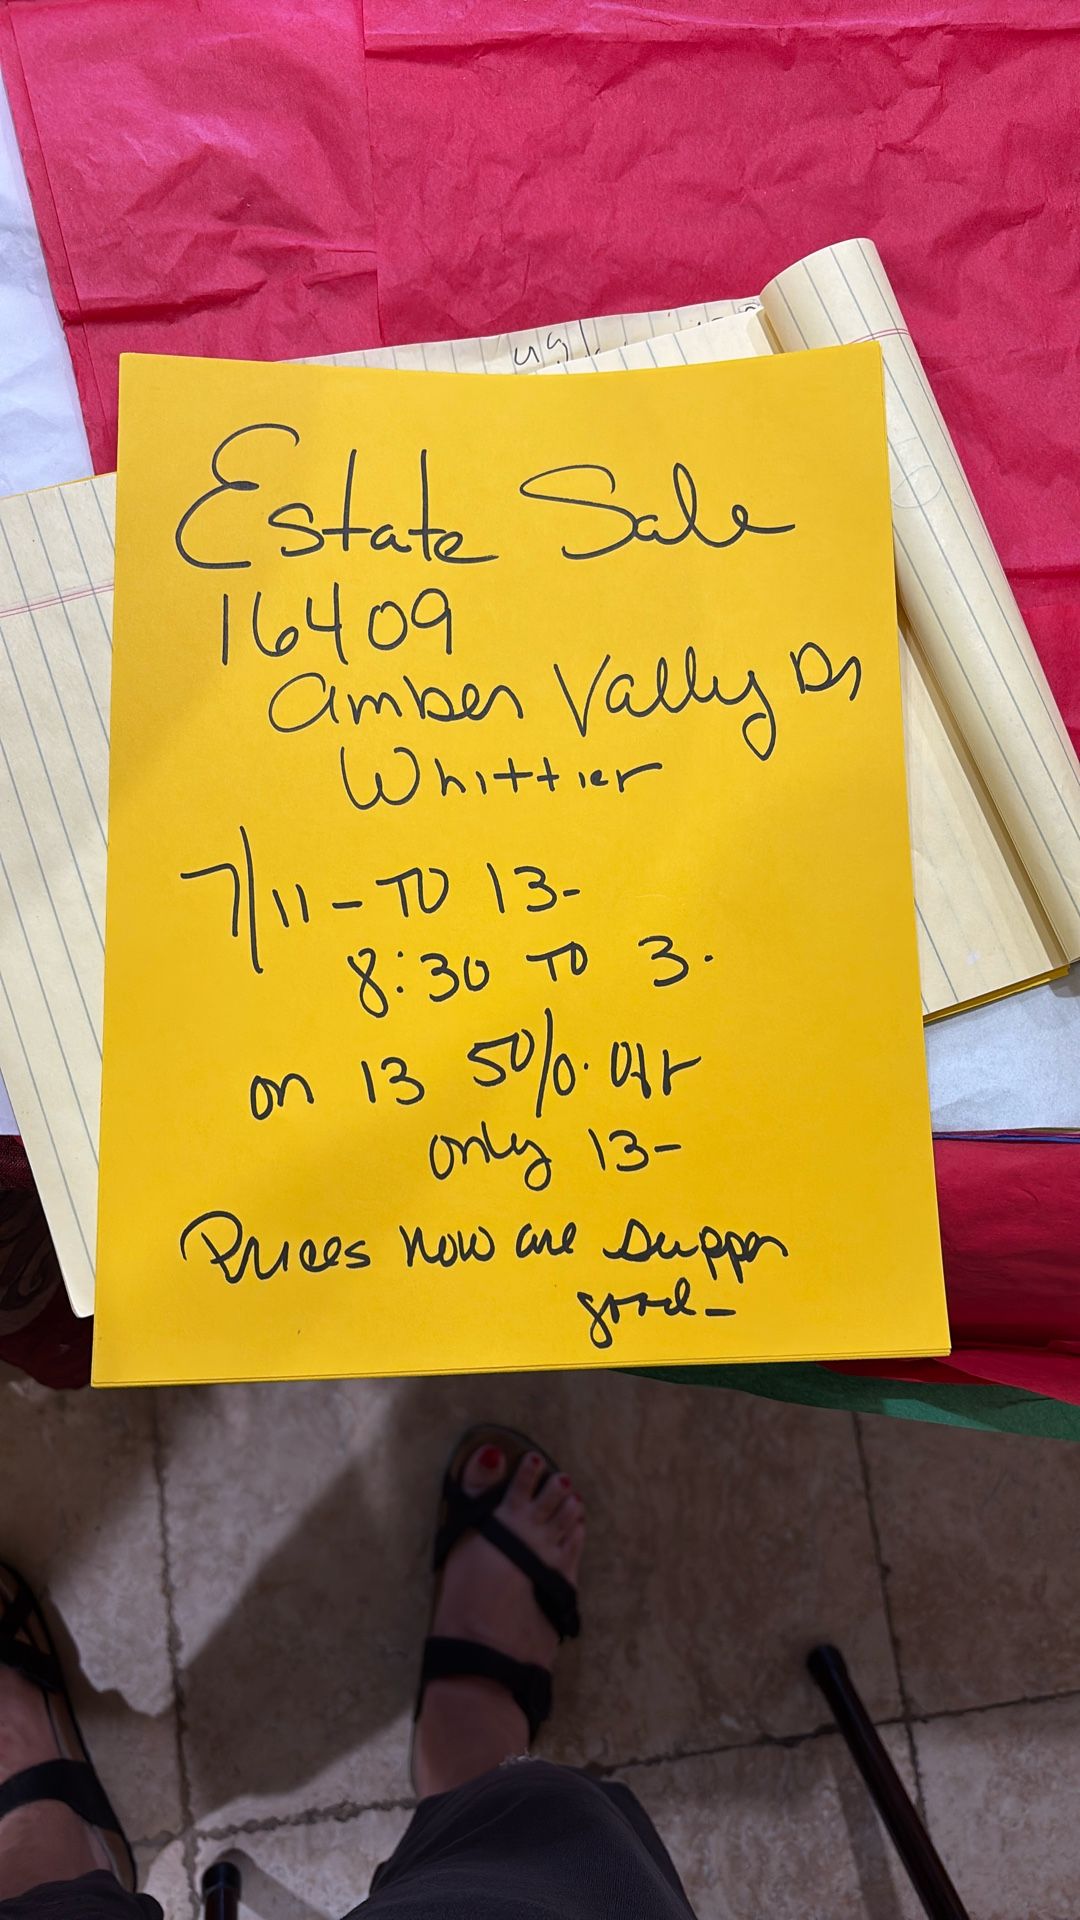 Estate Sale
16409
Amber Vally Dr
Whittier
7/11 - TO 13-
8:30 TO 3.
on 13 50%. Off
only 13-
Prices now are supper
good-